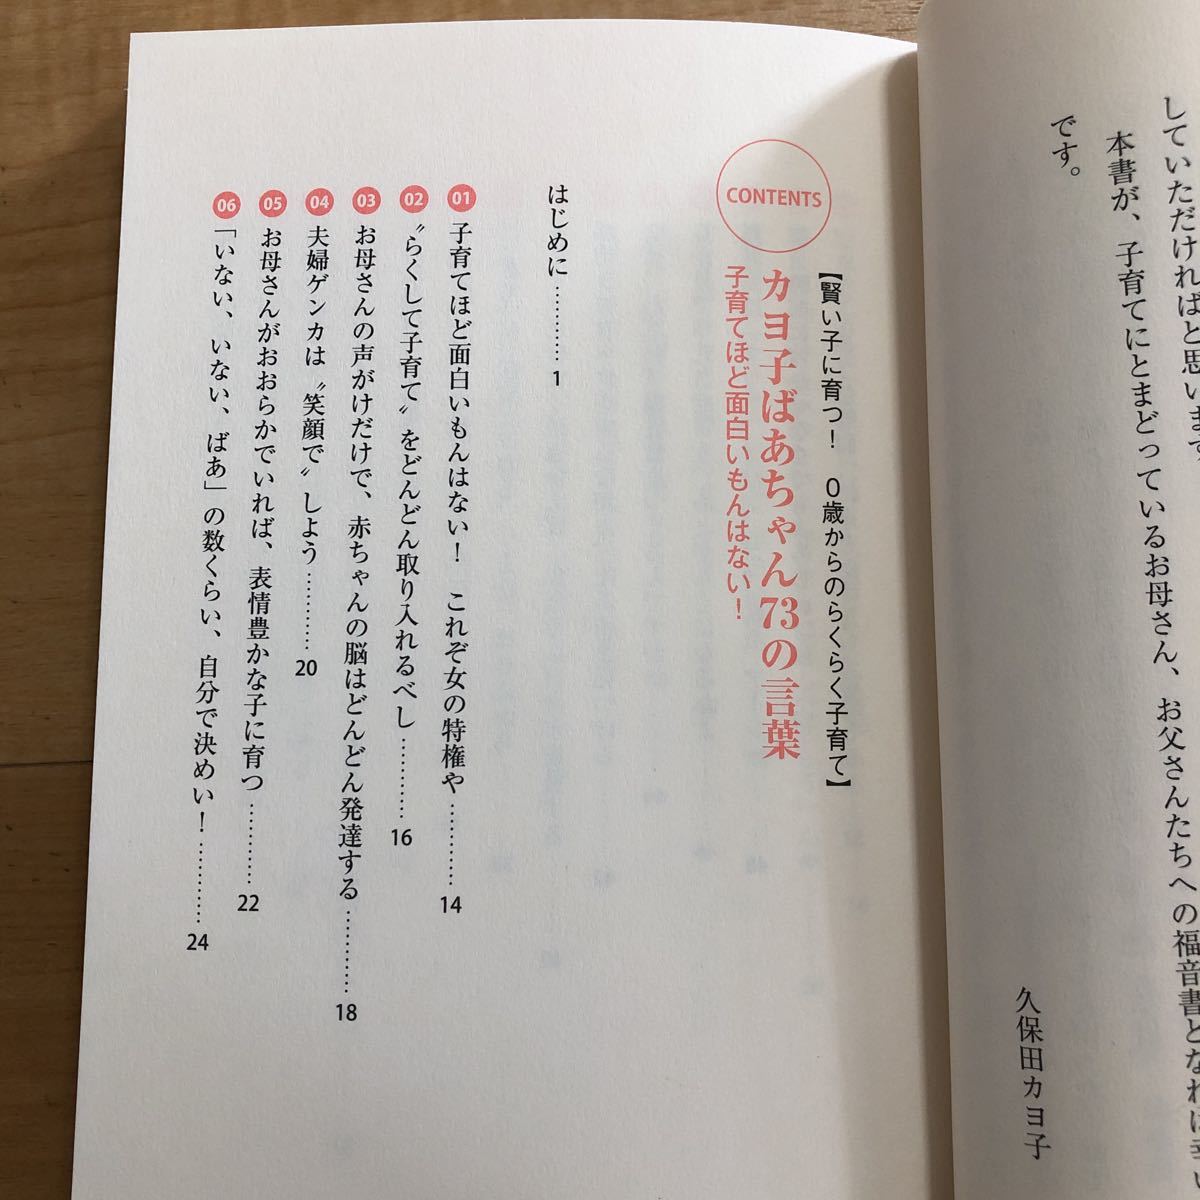 していただければと思います。
本書が、子育てにとまどっているお母さん、お父さんたちへの福音書となれば幸い
です。
久保田カヨ子
CONTENTS
【賢い子に育つ！　0歳からのらくらく子育て】
カヨ子ばあちゃん73の言葉
子育てほど面白いもんはない！
はじめに…………1
01 子育てほど面白いもんはない！　これぞ女の特権や…………14
02 〝らくして子育て〟をどんどん取り入れるべし…………16
03 お母さんの声がけだけで、赤ちゃんの脳はどんどん発達する…………18
04 夫婦ゲンカは〝笑顔で〟しよう…………20
05 お母さんがおおらかでいれば、表情豊かな子に育つ…………22
06 「いない、いない、ばあ」の数くらい、自分で決めい！…………24